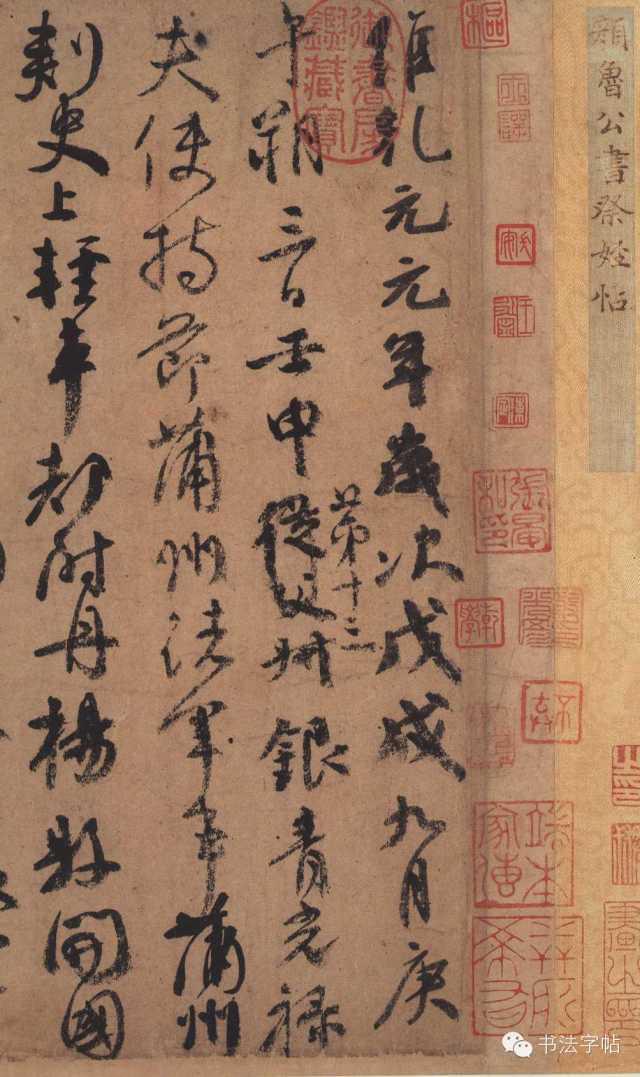 顏魯公書祭姪帖
維乾元元年歲次戊戌九月庚
午朔三日壬申第十三從父叔銀青光祿
夫使持節蒲州諸軍事蒲州
刺史上輕車都尉丹楊縣開國
御書房鑑藏寶
书法字帖